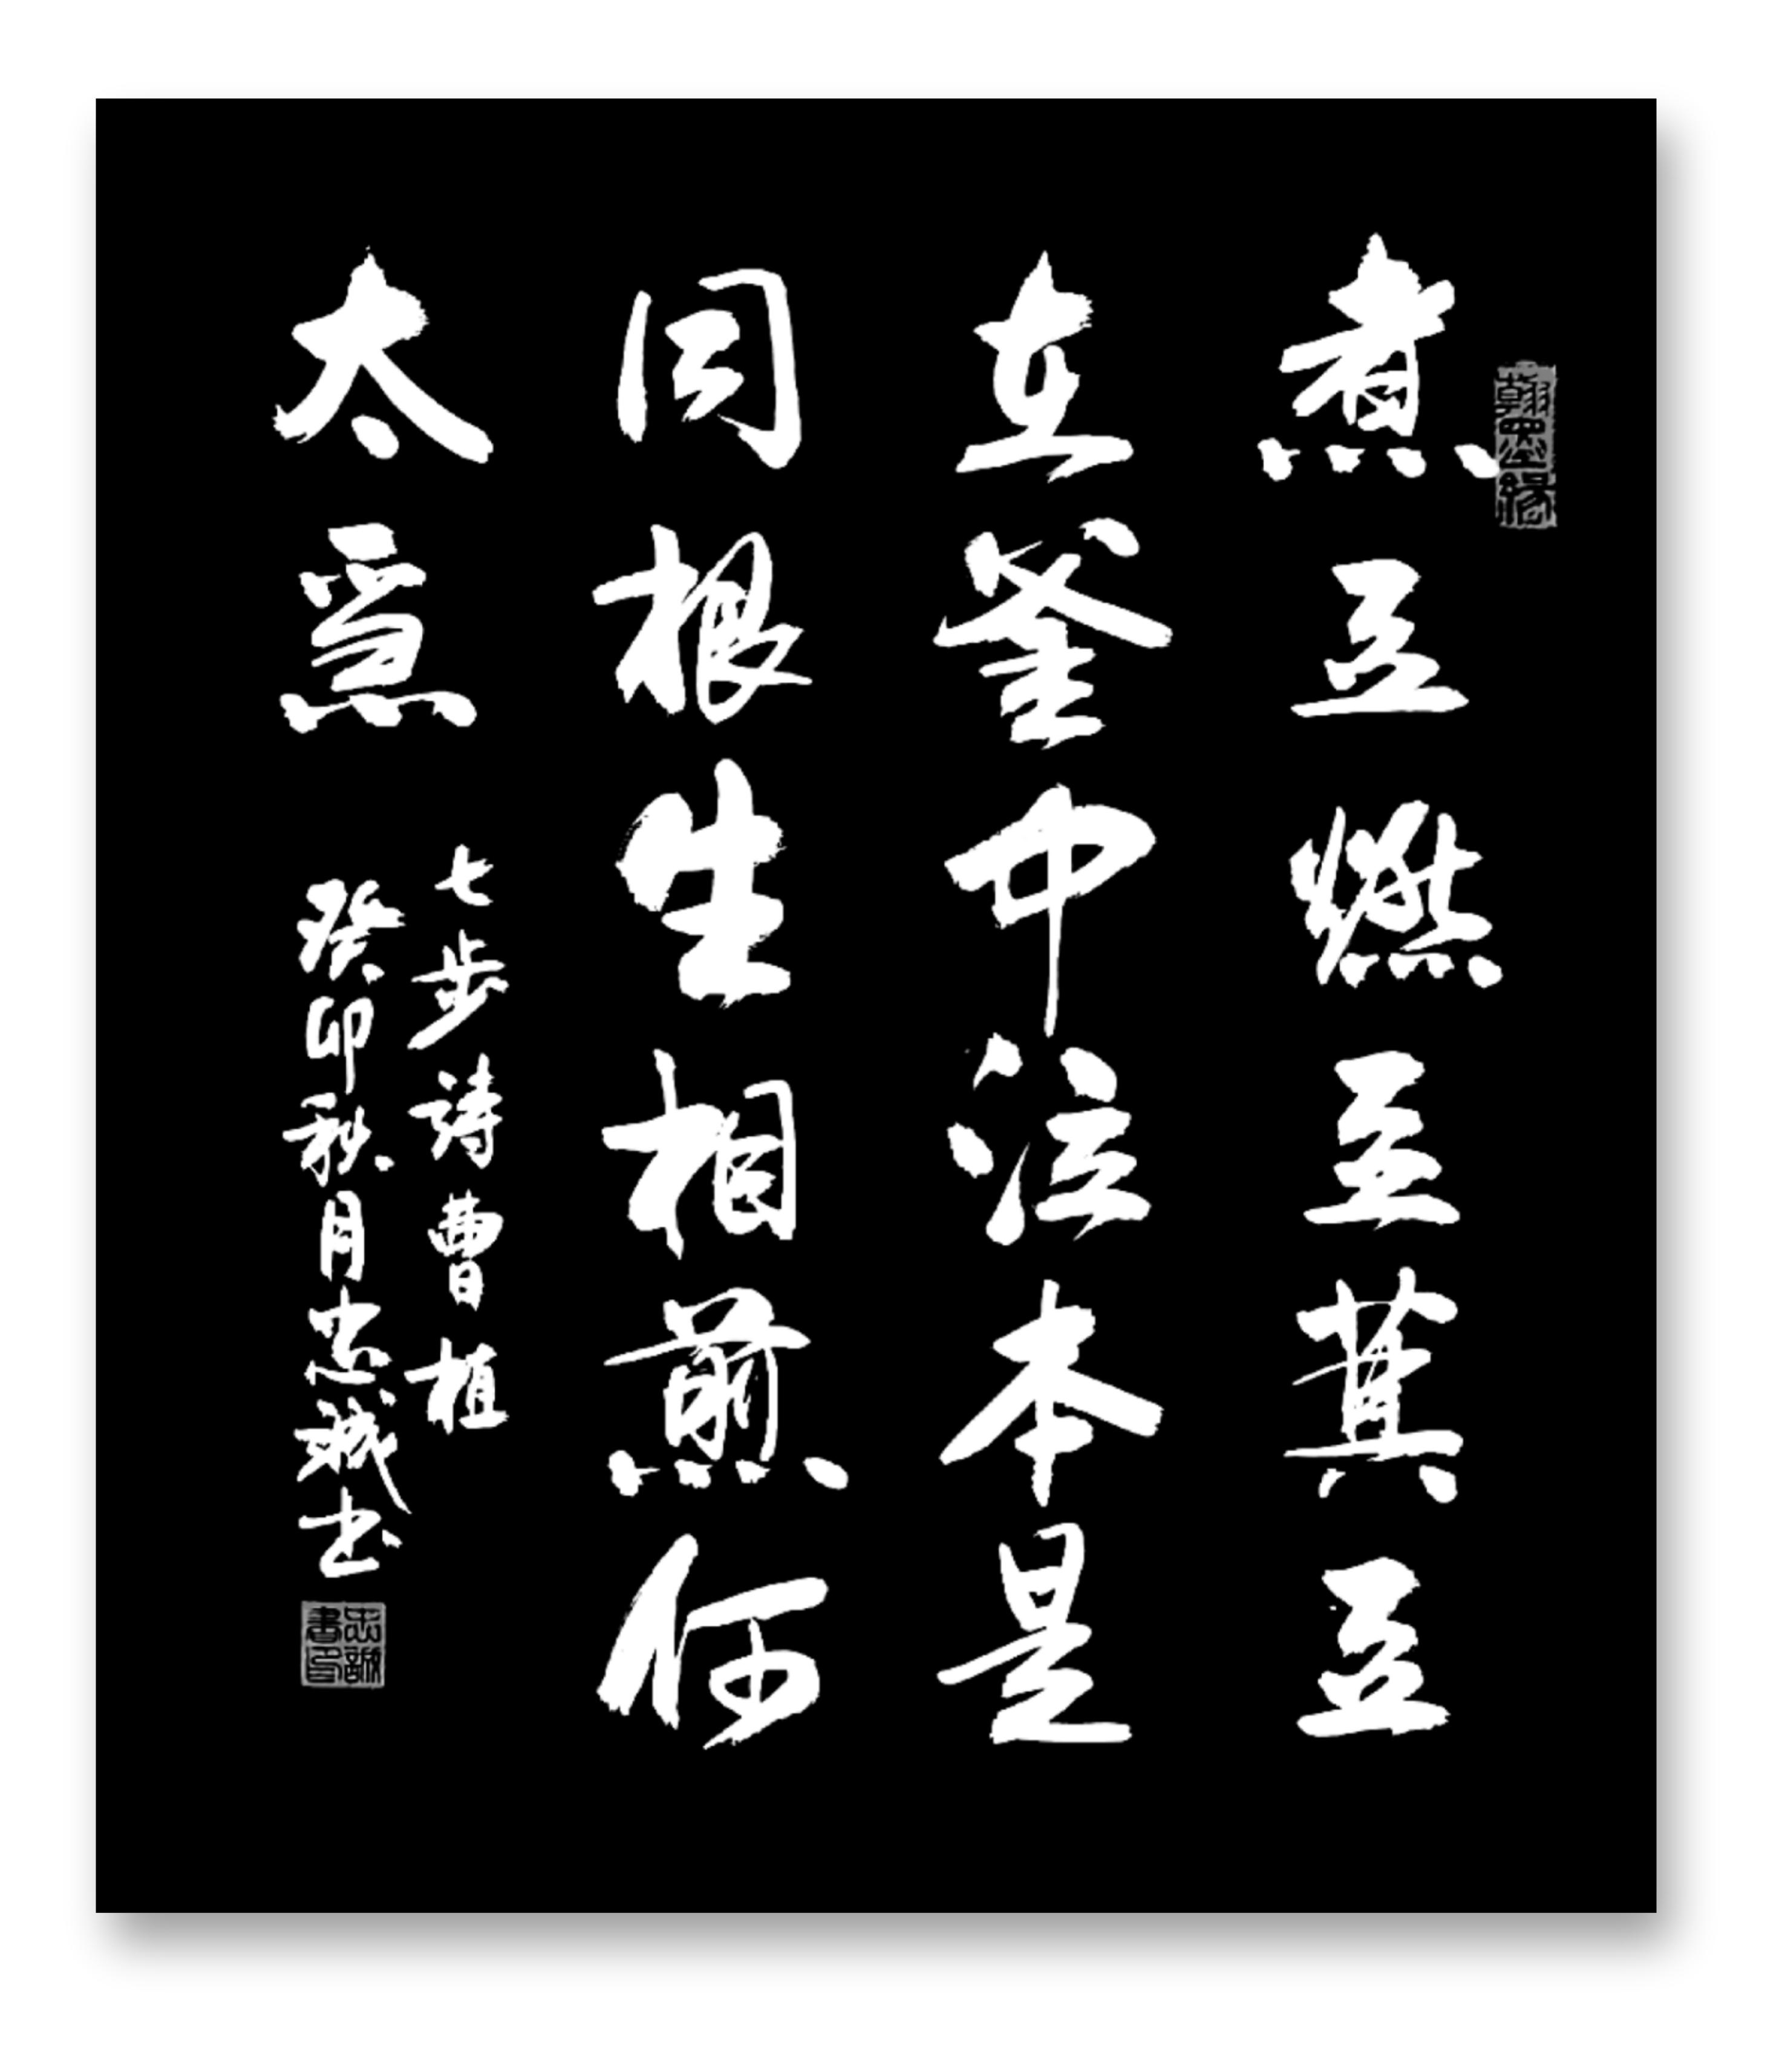 翰墨緣
煮豆燃豆萁豆
在釜中泣本是
同根生相煎何
太急
七步詩曹植
癸卯秋月忠誠书
忠誠書印